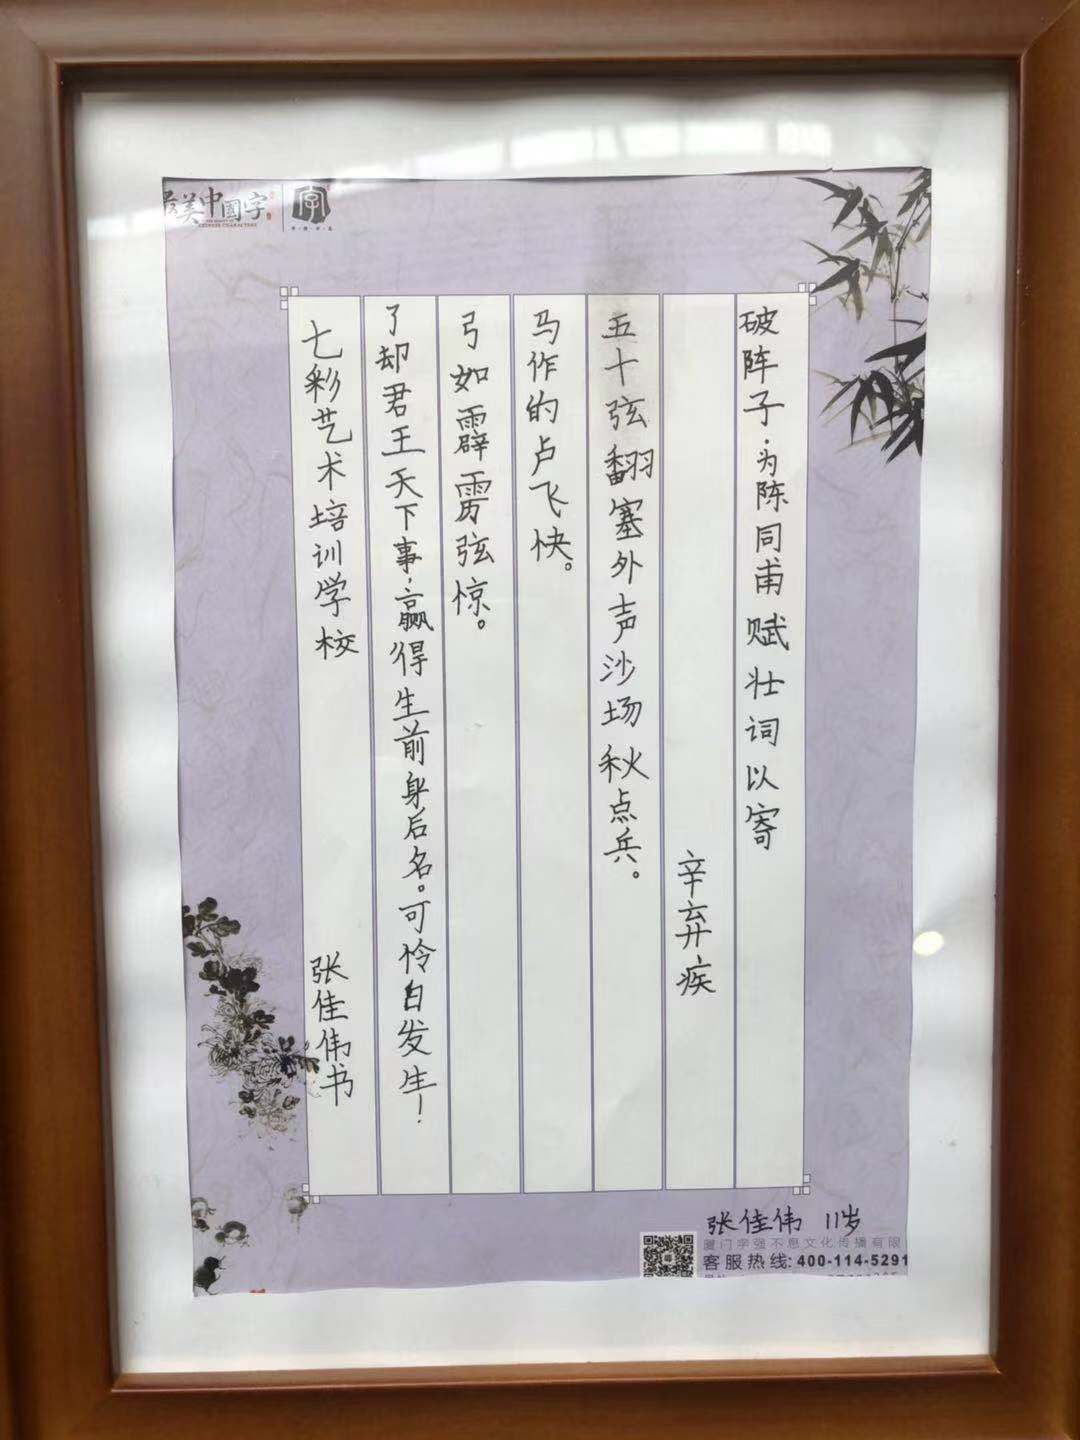 最美中國字
CHINESE CHARACTERS
字
破阵子·为陈同甫赋壮词以寄
辛弃疾
五十弦翻塞外声沙场秋点兵。
马作的卢飞快。
弓如霹雳弦惊。
了却君王天下事,赢得生前身后名。可怜白发生!
七彩艺术培训学校
张佳伟书
张佳伟 11岁
厦门字强不息文化传播有限
客服热线:400-114-5291